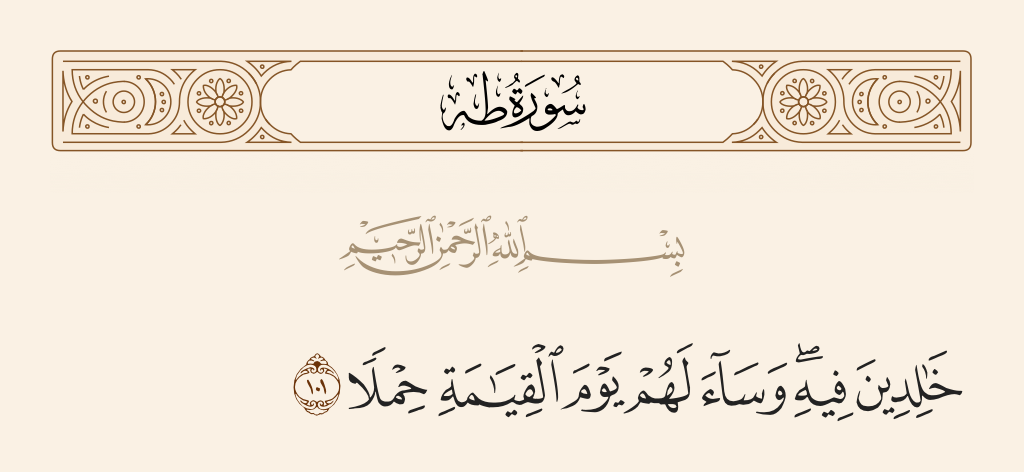 سُورَةُ طه
بِسْمِ ٱللَّهِ ٱلرَّحْمَٰنِ ٱلرَّحِيمِ
خَٰلِدِينَ فِيهِۖ وَسَآءَ لَهُمْ يَوْمَ ٱلْقِيَٰمَةِ حِمْلًا ١٠١